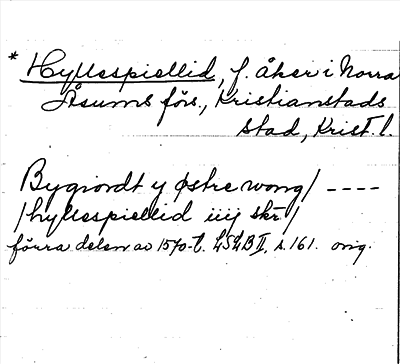 * Hyllespiellid, f. åker i Norra
Åsums förs., Kristianstads
stad, Krist. l.
Bygiordt y østre wong/ ----
/hyllespiellid iiij skr/
förra delen av 1570-t. LSLB II, s. 161. orig.